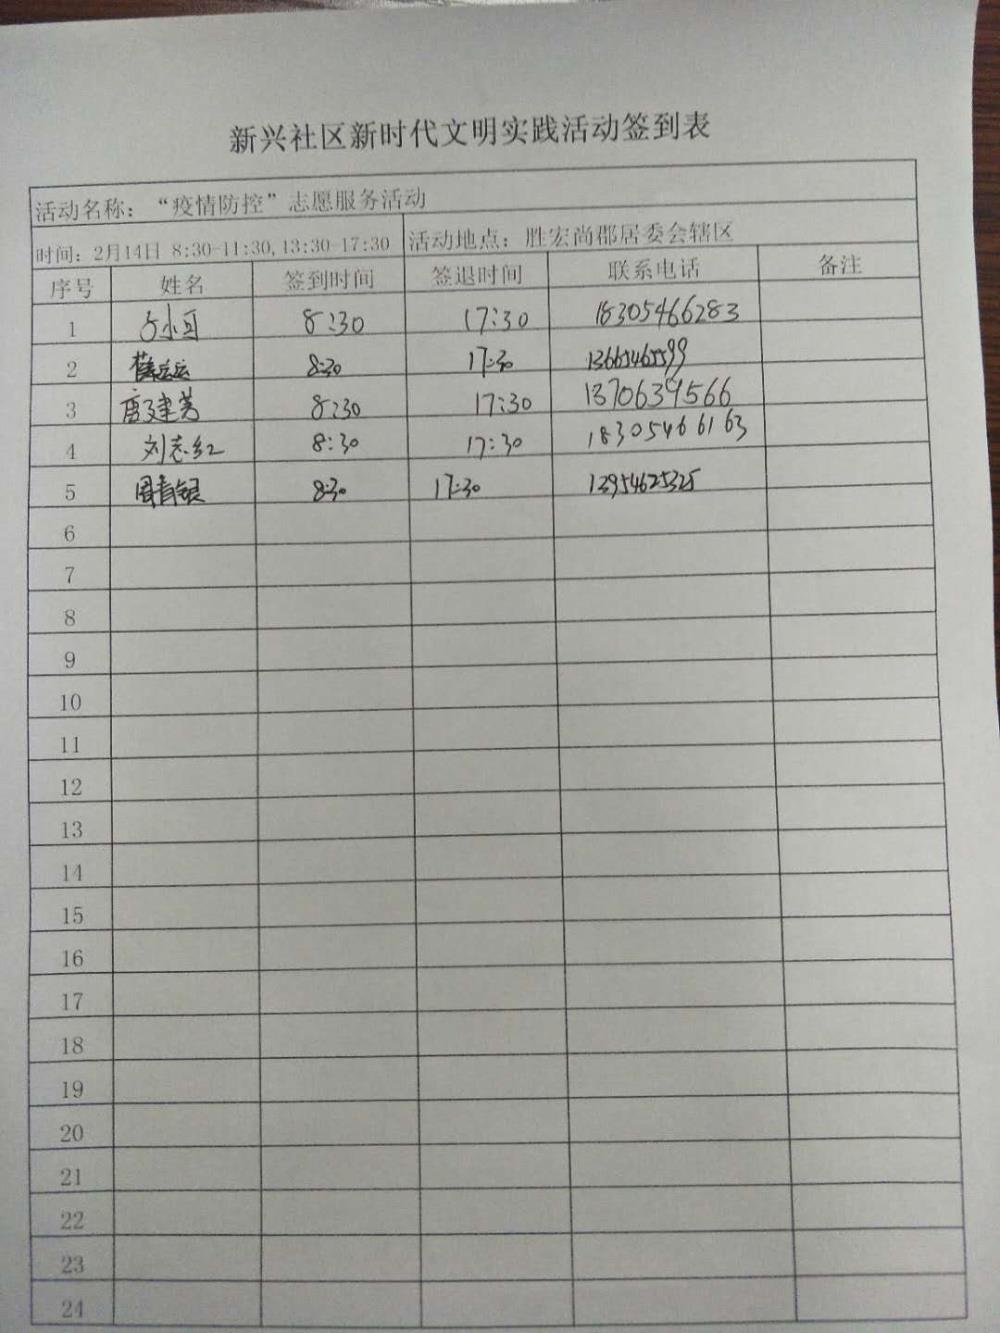 新兴社区新时代文明实践活动签到表
活动名称：“疫情防控”志愿服务活动
时间：2月14日 8:30-11:30,13:30-17:30 活动地点：胜宏尚郡居委会辖区
序号 姓名 签到时间 签退时间 联系电话 备注
1 8:30 17:30 18305466283
2 8:30 17:30 13665465599
3 唐建芳 8:30 17:30 1370639566
4 刘志红 8:30 17:30 18305466163
5 周青银 8:30 17:30 13954625325
6
7
8
9
10
11
12
13
14
15
16
17
18
19
20
21
22
23
24